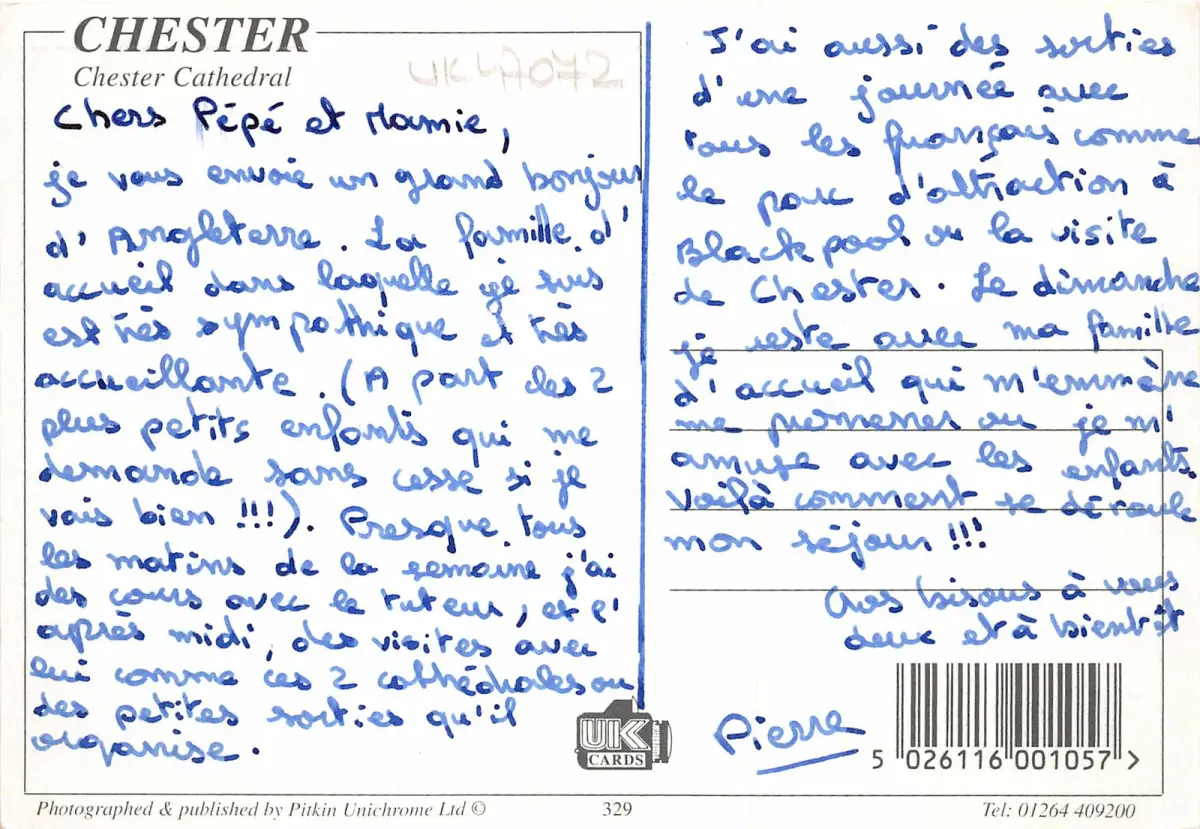 CHESTER
Chester Cathedral
UK47072
Chers Pépé et Mamie,
je vous envoie un grand bonjour
d'Angleterre. La famille d'
accueil dans laquelle je suis
est très sympathique et très
accueillante. (A part les 2
plus petits enfants qui me
demande sans cesse si je
vais bien !!!). Presque tous
les matins de la semaine j'ai
des cours avec le tuteur, et l'
après midi, des visites avec
lui comme ces 2 cathédrales ou
des petites sorties qu'il
organise.
J'ai aussi des sorties
d'une journée avec
tous les français comme
le parc d'attraction à
Blackpool ou la visite
de Chester. Le dimanche
je reste avec ma famille
d'accueil qui m'emmène
me promener ou je m'
amuse avec les enfants.
Voilà comment se déroule
mon séjour !!!
Gros bisous à vous
deux et à bientôt
Pierre
UK
CARDS
5 026116 001057 >
Photographed & published by Pitkin Unichrome Ltd ©
329
Tel: 01264 409200